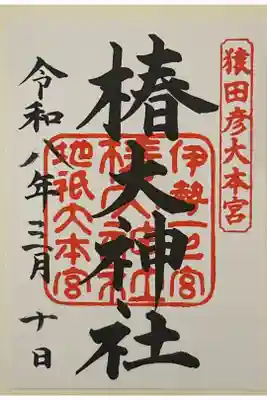 猿田彦大本宮
伊勢一之宮
椿大神社
地祇大本宮
令和八年三月十日